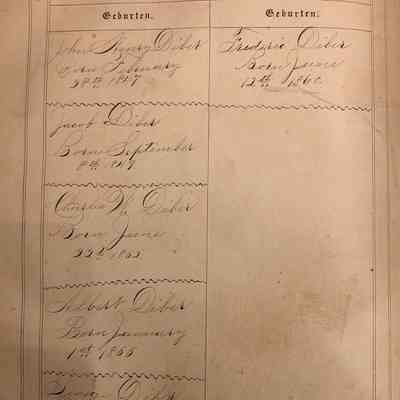 Geburten.
John Henry Diber
Born February
28th 1847
Jacob Diber
Born September
8th 1849
Charles W. Diber
Born June
22th 1852
Albert Diber
Born January
1st 1855
Diber
Geburten.
Frederic Diber
Born June
12th 1860